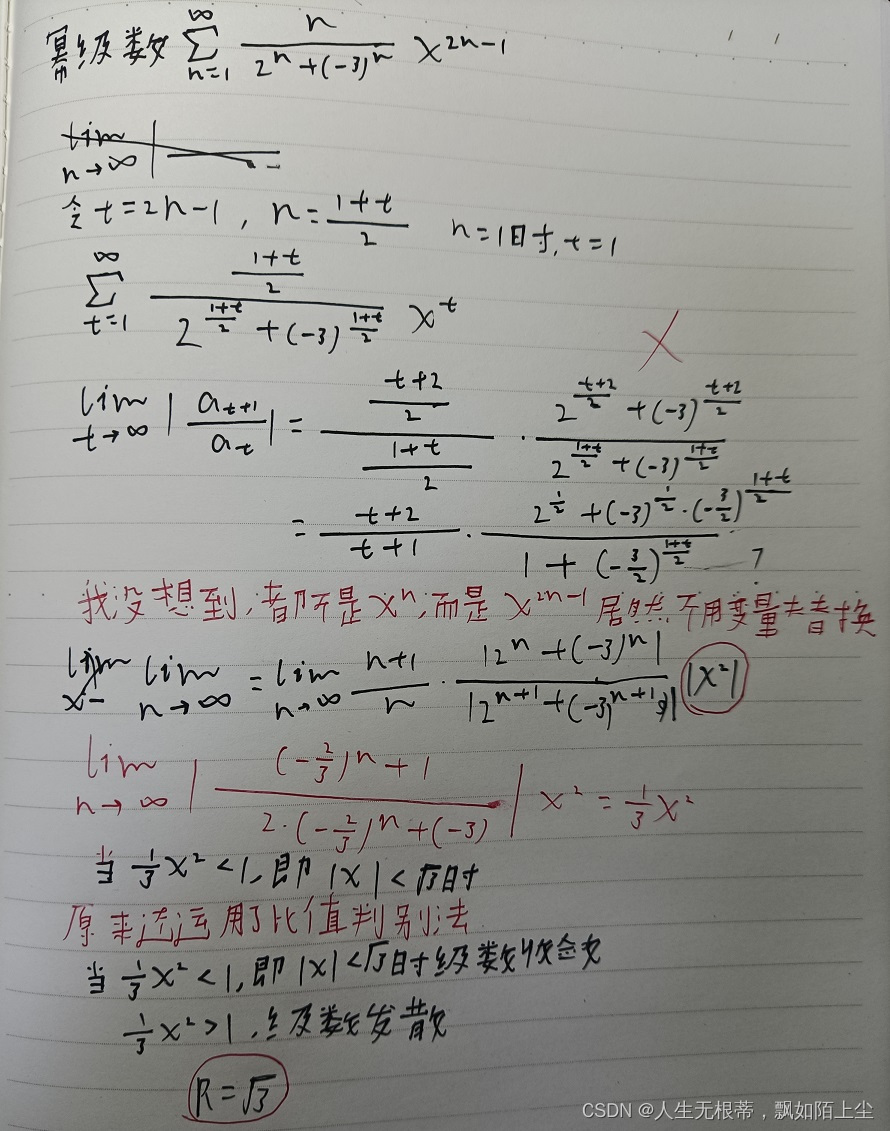 幂级数 ∑_{n=1}^{∞} n/(2^n+(-3)^n) x^{2n-1}
lim_{n→∞} |
令 t=2n-1, n=(1+t)/2 n=1时, t=1
∑_{t=1}^{∞} ((1+t)/2)/(2^{(1+t)/2}+(-3)^{(1+t)/2}) x^t
×
lim_{t→∞} |a_{t+1}/a_t| = ((t+2)/2)/((1+t)/2) · (2^{(t+2)/2}+(-3)^{(t+2)/2})/(2^{(1+t)/2}+(-3)^{(1+t)/2})
= (t+2)/(t+1) · (2^{1/2}+(-3)^{1/2}·(-3/2)^{(1+t)/2})/(1+(-3/2)^{(1+t)/2}) ?
我没想到,都不是x^n,而是x^{2n-1}居然不用变量去替换
lim_{n→∞} = lim_{n→∞} (n+1)/n · |2^n+(-3)^n|/|2^{n+1}+(-3)^{n+1}| |x²|
lim_{n→∞} |((-2/3)^n+1)/(2·(-2/3)^n+(-3))| x² = 1/3 x²
当 1/3 x²<1,即 |x|<√3时
原来运用了比值判别法
当 1/3 x²<1,即 |x|<√3时级数收敛
1/3 x²>1,级数发散
R=√3
CSDN @人生无根蒂，飘如陌上尘